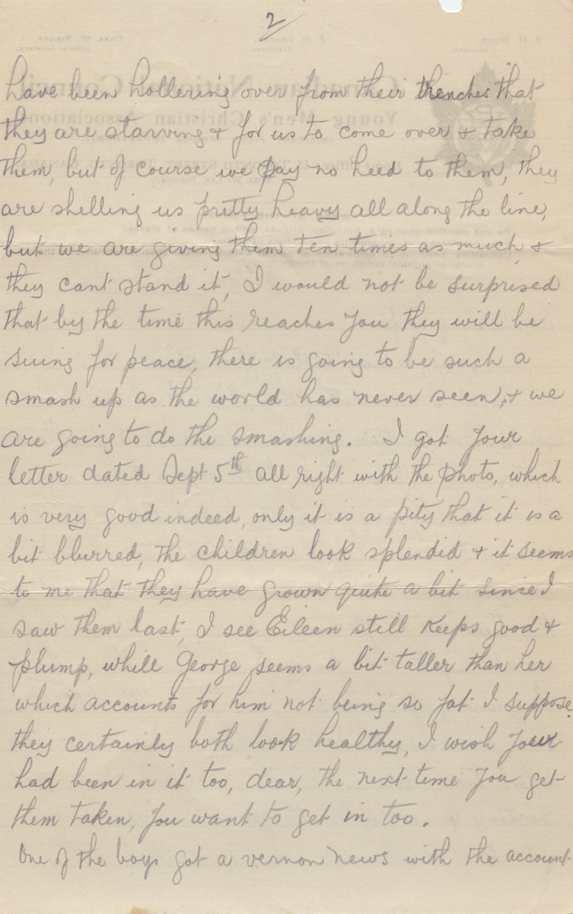 2
have been hollering over from their trenches that
they are starving & for us to come over & take
them, but of course we pay no heed to them, they
are shelling us pretty heavy all along the line,
but we are giving them ten times as much &
they cant stand it, I would not be surprised
that by the time this reaches you they will be
suing for peace, there is going to be such a
smash up as the world has never seen, & we
are going to do the smashing. I got your
letter dated Sept 5th all right with the photo, which
is very good indeed, only it is a pity that it is a
bit blurred, the children look splendid & it seems
to me that they have grown quite a bit since I
saw them last, I see Eileen still keeps good &
plump, while George seems a bit taller than her
which accounts for him not being so fat I suppose,
they certainly both look healthy, I wish your
had been in it too, dear, the next time you get
them taken, you want to get in too.
One of the boys got a vernon news with the account